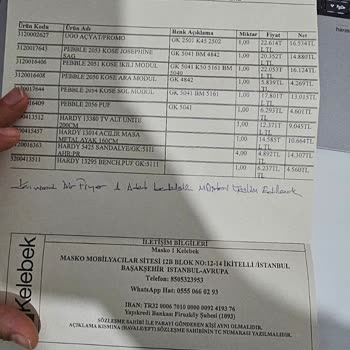 Ürün Kodu Ürün Adı Renk Açıklama Miktar Fiyat Net
3120002627 UGO AÇYAT/PROMO GK 2501 K45 2502 1,00 22.614T L TL 16.534TL
3120017643 PEBBLE 2053 KÖŞE JOSEPHINE SAG GK 5041 BM 4842 1,00 20.352T L TL 14.880TL
3120016406 PEBBLE 2051 KÖŞE İKİLİ MODÜL GK 5041 K50 5161 BM 5040 1,00 22.053T L TL 16.124TL
3120016408 PEBBLE 2050 KÖŞE ARA MODÜL GK 4842 1,00 5.839TL 4.269TL
3120017644 PEBBLE 2054 KÖŞE SOL MODÜL GK 5041 BM 5161 1,00 17.801T L TL 13.015TL
PEBBLE 2056 PUF GK 5041 1,00 6.293TL 4.601TL
HARDY 13380 TV ALT ÜNİTE 200CM 1,00 12.371T L TL 9.045TL
HARDY 13014 AÇILIR MASA METAL AYAK 160CM 1,00 14.585T L TL 10.664TL
HARDY 5425 SANDALYE/GK:5111 AHR:PR 4,00 4.892TL 14.307TL
3200413511 HARDY 13295 BENCH.PUF GK:5111 1,00 6.237TL 4.560TL
Kelebek
İLETİŞİM BİLGİLERİ
Masko 1 Kelebek
MASKO MOBİLYACILAR SİTESİ 12B BLOK NO:12-14 İKİTELLİ /İSTANBUL
BAŞAKŞEHİR İSTANBUL-AVRUPA
Telefon: 8505323953
WhatsApp Hat: 0555 066 02 93
IBAN: TR32 0006 7010 0000 0092 4193 76
Yapıkredi Bankası Firuzköy Şubesi (1093)
SÖZLEŞME SAHİBİ İLE PARAYI GÖNDEREN KİŞİ AYNI OLMALIDIR.
AÇIKLAMA KISMINA (HAVALE/EFT) SÖZLEŞME SAHİBİNİN TC NUMARASI YAZILMALIDIR.